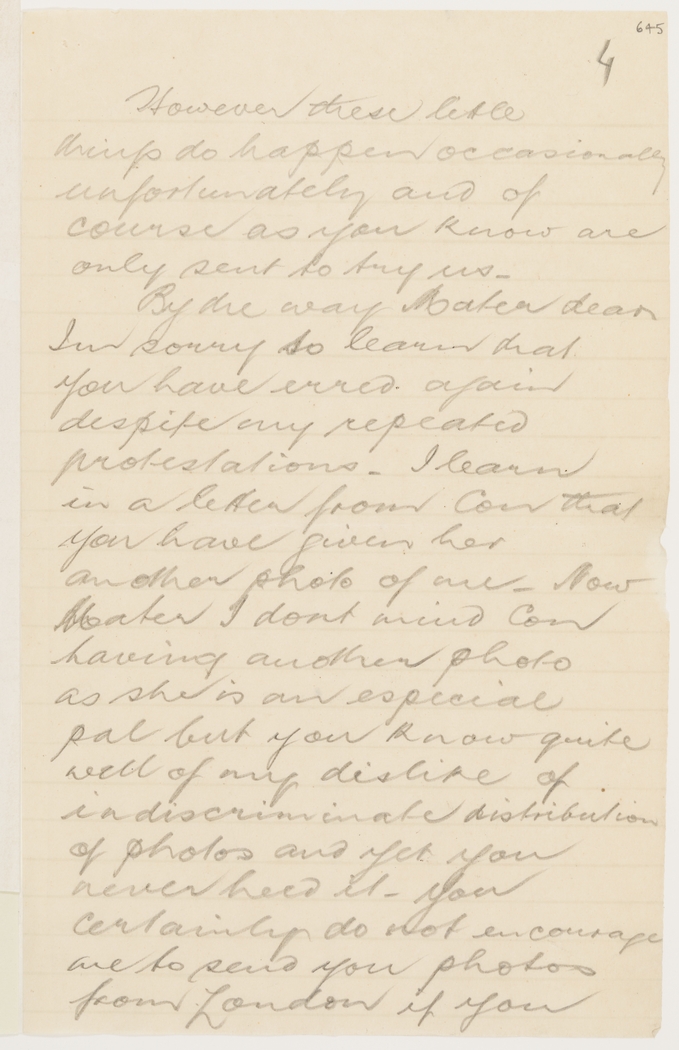 645
4
However these little
things do happen occasionally
unfortunately and of
course as you know are
only sent to try us -
By the way Mater dear
Im sorry to learn that
you have erred again
despite my repeated
protestations - I learn
in a letter from Con that
you have given her
another photo of me - Now
Mater I dont mind Con
having another photo
as she is an especial
pal but you know quite
well of my dislike of
indiscriminate distribution
of photos and yet you
never heed it - you
certainly do not encourage
me to send you photos
from London if you